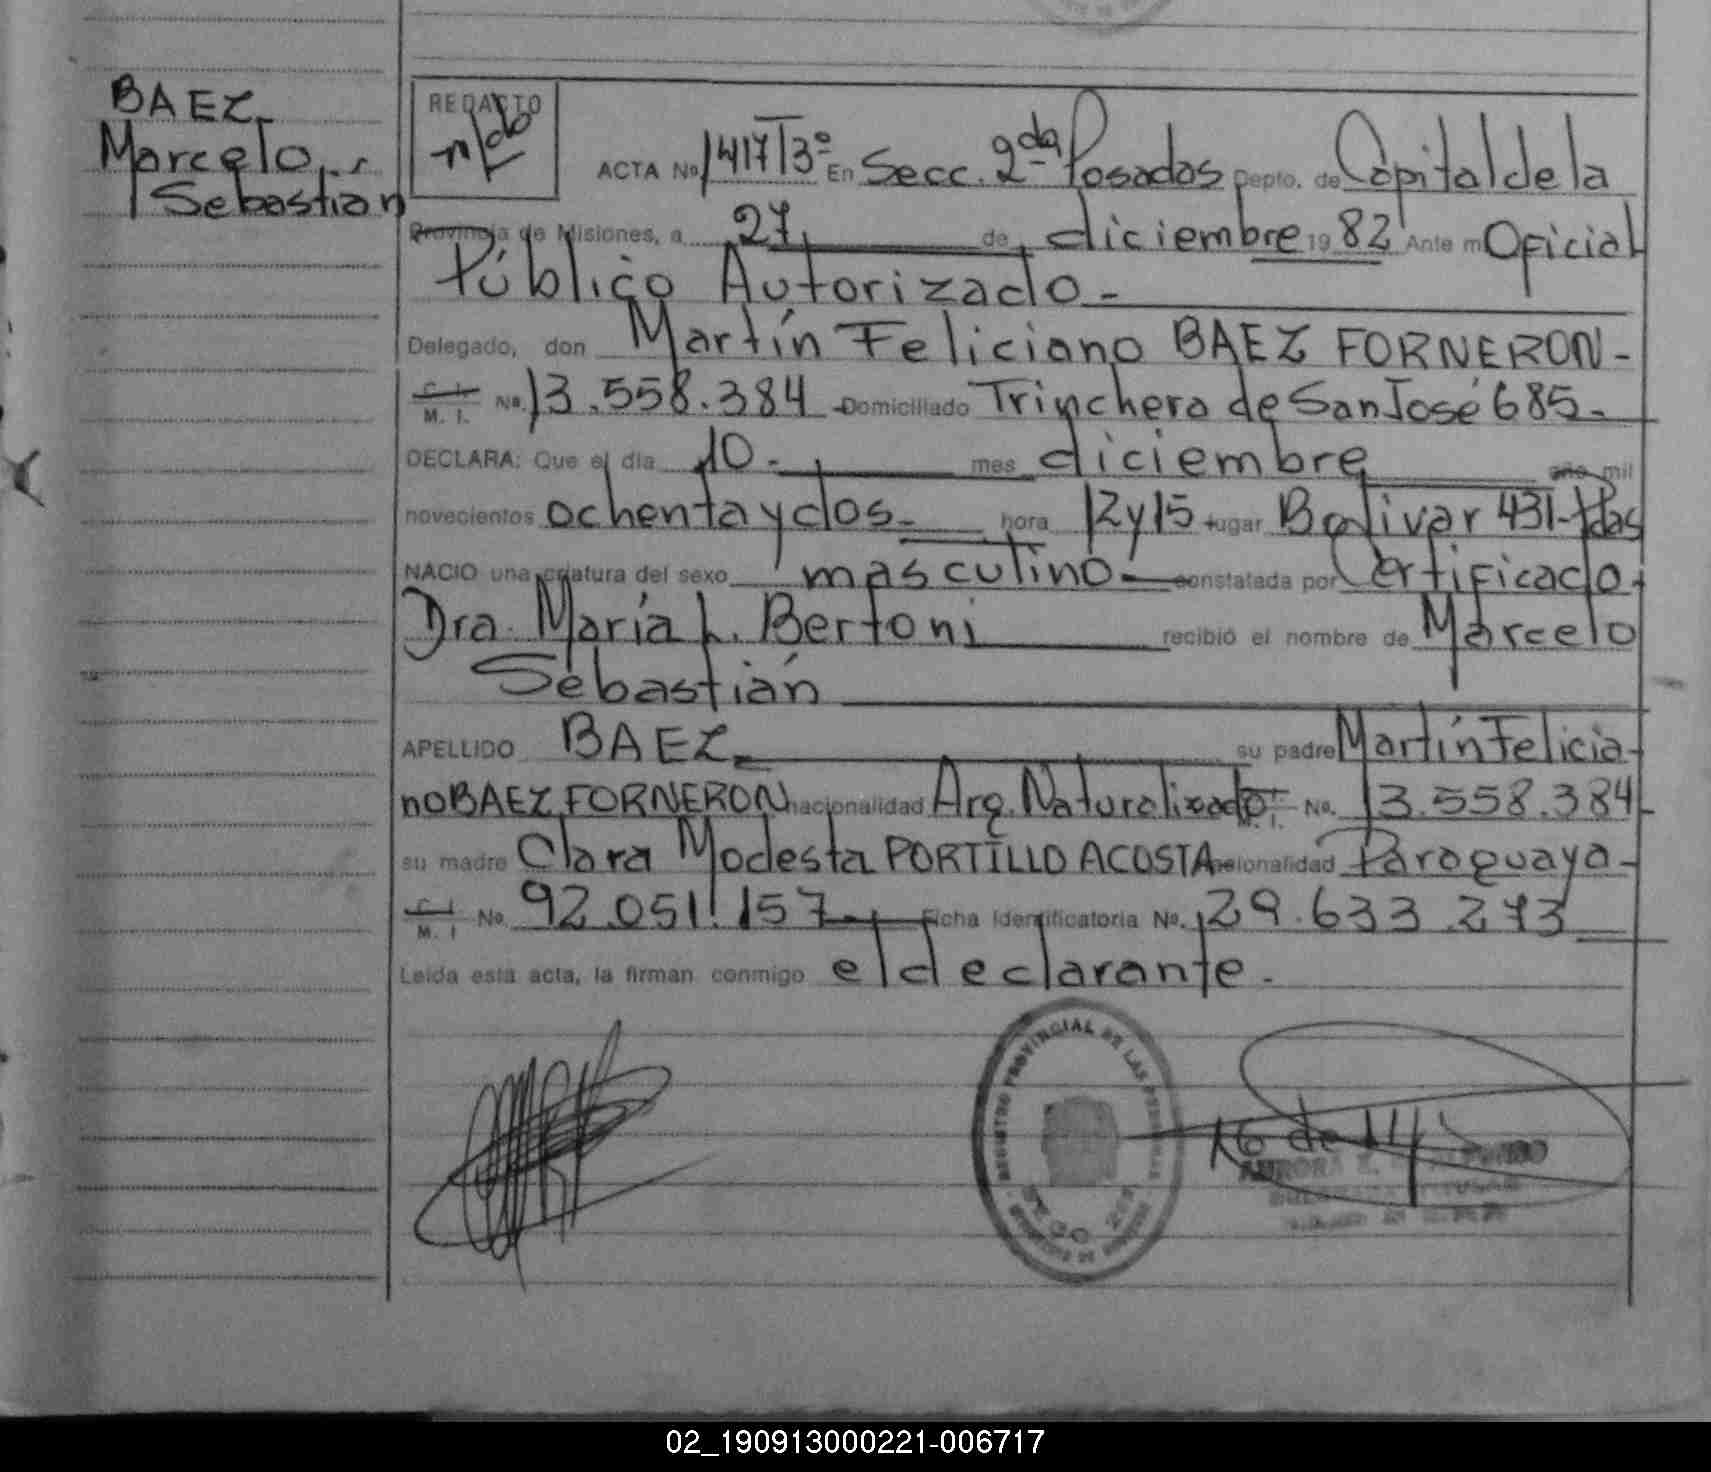 BAEZ
Marcelo
Sebastián
REDACTO
ACTA No 1417 T3º En Secc. 2da Posadas Depto. de Capital de la
Provincia de Misiones, a 27 de diciembre 1982 Ante mi Oficial
Público Autorizado -
Delegado, don Martín Feliciano BAEZ FORNERON -
C. I. M. I. No. 13.558.384 Domiciliado Trinchera de San José 685 -
DECLARA: Que el día 10 - mes diciembre año mil
novecientos ochenta y dos - hora 12 y 15 lugar Bolivar 431 - Pdas
NACIO una criatura del sexo masculino - constatada por Certificado
Dra. María L. Bertoni recibió el nombre de Marcelo
Sebastián
APELLIDO BAEZ su padre Martín Felicia-
no BAEZ FORNERON nacionalidad Arg. Naturalizado C. I. M. I. No. 13.558.384
su madre Clara Modesta PORTILLO ACOSTA nacionalidad Paraguaya -
C. I. M. I No. 92.051.157 - Ficha Identificatoria No. 29.633.273
Leída esta acta, la firman conmigo el declarante -
REGISTRO PROVINCIAL DE LAS PERSONAS
16 de 14
02_190913000221-006717